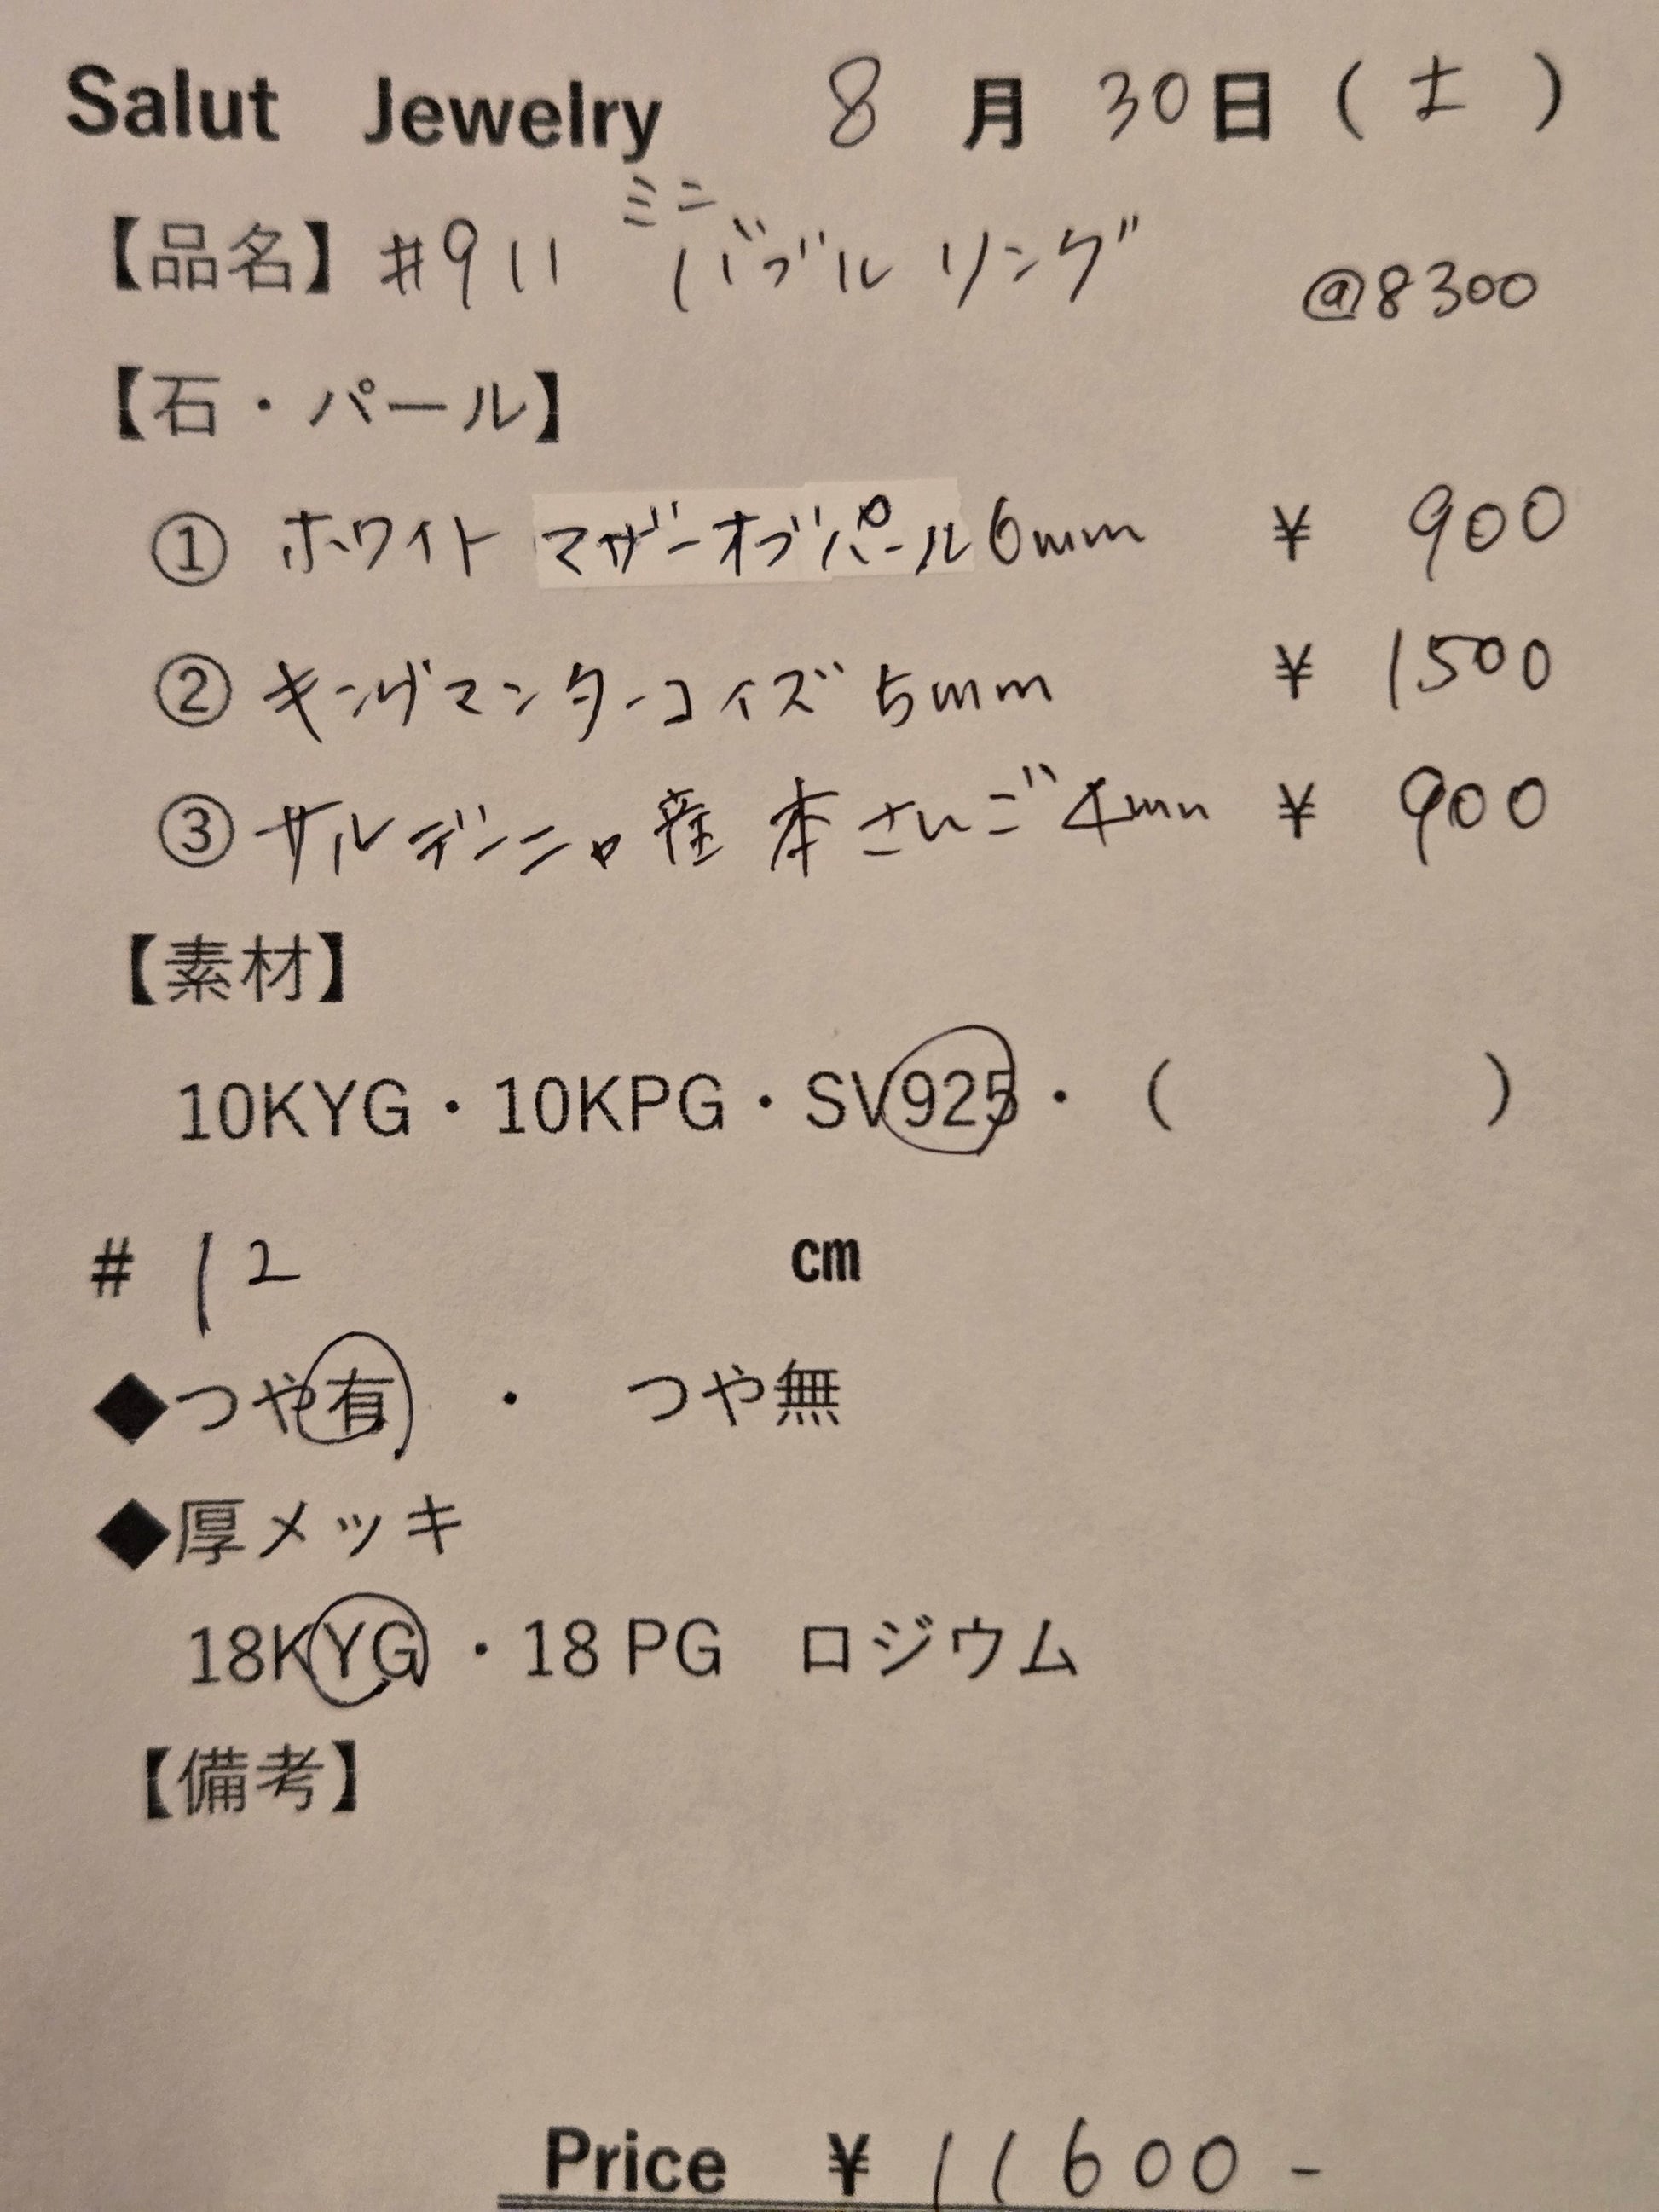 Salut Jewelry 8 月 30 日 ( 土 )
【品名】 #911 ミニバブルリング @8300
【石・パール】
① ホワイトマザーオブパール 6mm ¥ 900
② キングマンターコイズ 5mm ¥ 1500
③ サルデンニャ産 本さんご 4mm ¥ 900
【素材】
10KYG・10KPG・SV925・( )
# 12 cm
◆つや有 ・ つや無
◆厚メッキ
18KYG ・18 PG ロジウム
【備考】
Price ¥ 11600-